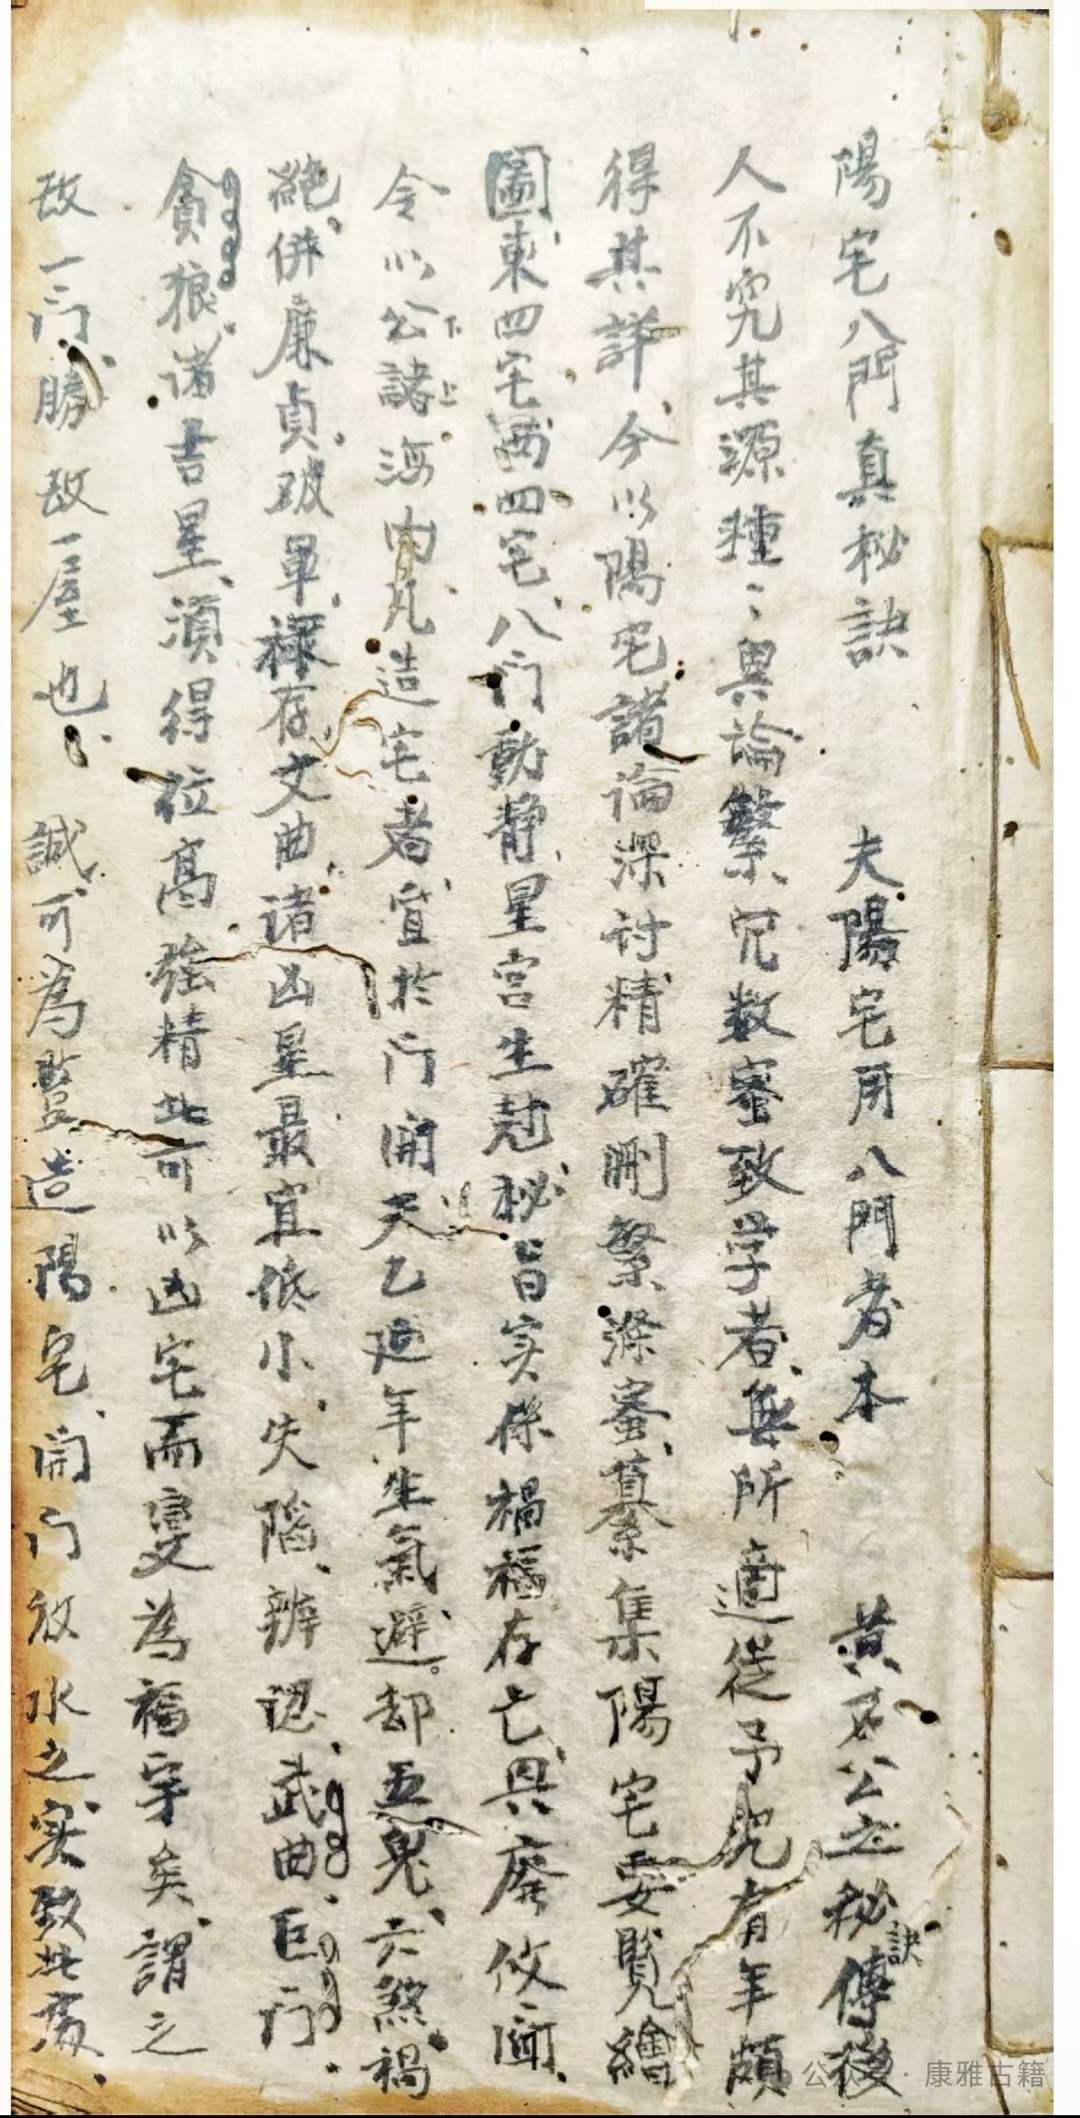 陽宅八門真秘訣　夫陽宅用八門者本　黄石公之秘訣傳後
人不究其源種〻異論繁冗数蜜致学者無所適從予究有年頗
得其詳今以陽宅諸論深讨精確刪繁滌蜜纂集陽宅要覧繪
圖東四宅西四宅八门動静星宫生尅秘旨实係禍福存亡具廢攸関
令以公諸海内凡造宅者宜於门開天乙延年生氣避却五鬼六煞禍
絶併廉貞破军禄存文曲诸凶星最宜低小失陷辨認武曲巨门
貪狼诸吉星湏得位高強精此可以凶宅而变為福宇矣謂之
改一门勝改一屋也誠可為監造陽宅開门放水之实致此度
公众号·康雅古籍